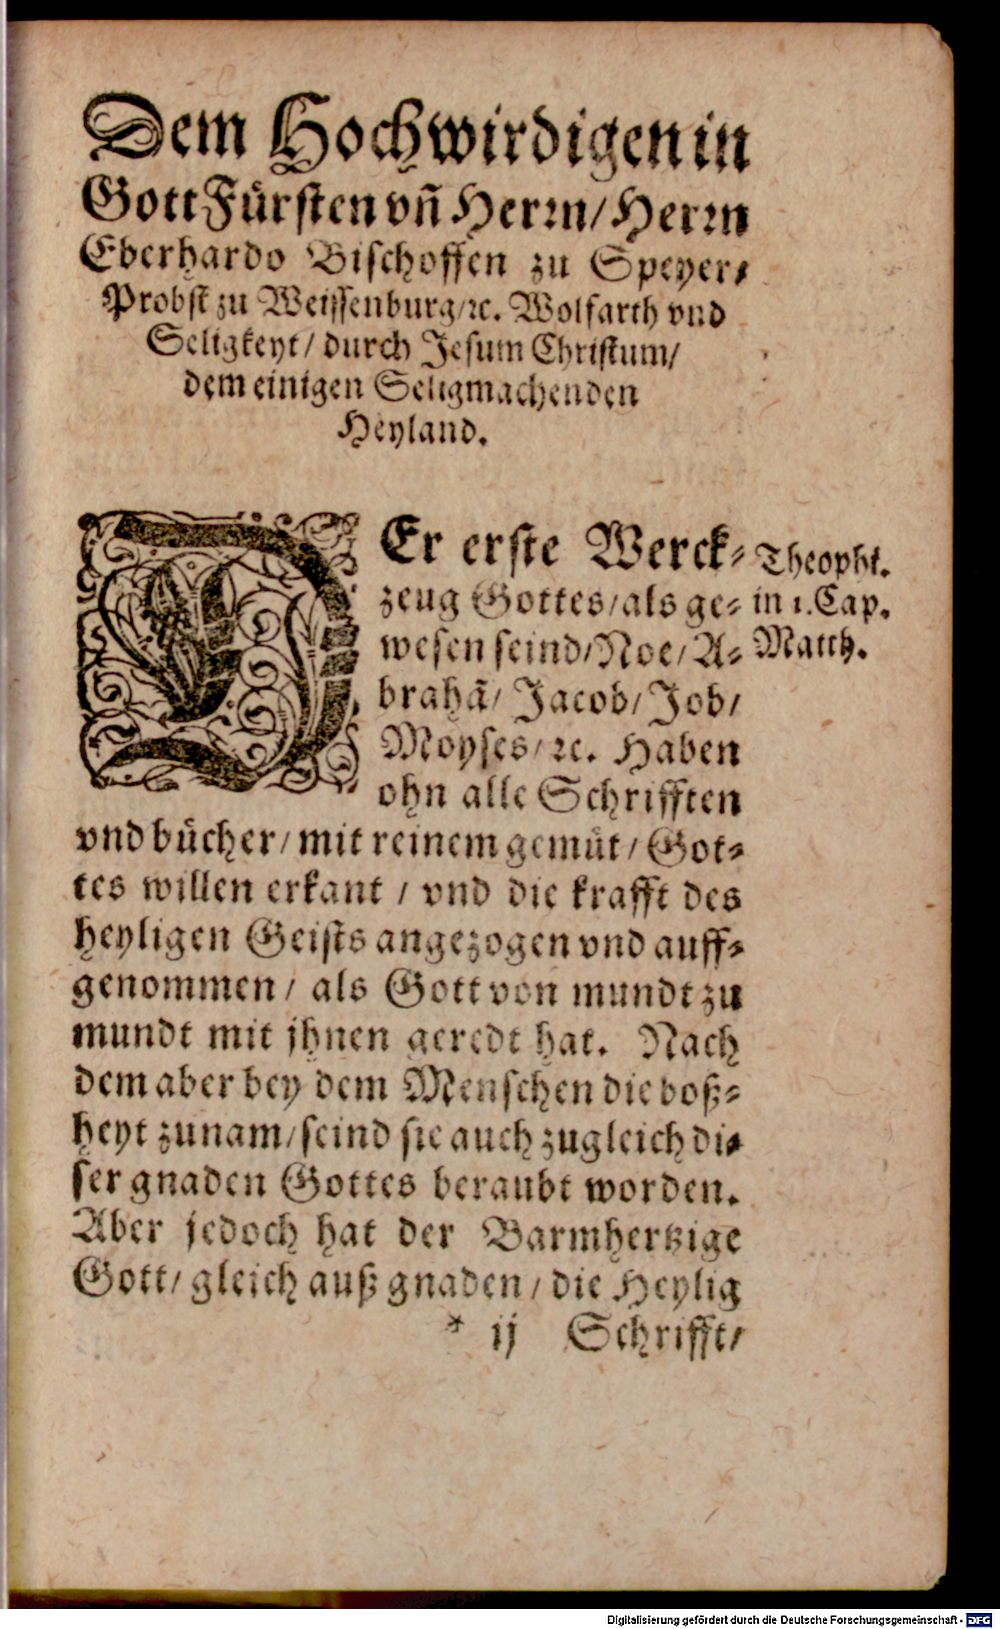 Dem Hochwirdigen in
Gott Fürsten vñ Herrn/ Herrn
Eberhardo Bischoffen zu Speyer/
Probst zu Weissenburg/ ꝛc. Wolfarth vnd
Seligkeyt/ durch Jesum Christum/
dem einigen Seligmachenden
Heyland.
DEr erste Werck-
zeug Gottes/ als ge-
wesen seind/ Noe/ A-
brahã/ Jacob/ Job/
Moyses/ ꝛc. Haben
ohn alle Schrifften
vnd bücher/ mit reinem gemüt/ Got-
tes willen erkant / vnd die krafft des
heyligen Geists angezogen vnd auff-
genommen/ als Gott von mundt zu
mundt mit jhnen geredt hat. Nach
dem aber bey dem Menschen die boß-
heyt zunam/ seind sie auch zugleich di-
ser gnaden Gottes beraubt worden.
Aber jedoch hat der Barmhertzige
Gott/ gleich auß gnaden/ die Heylig
* ij Schrifft/
Theophi.
in 1. Cap.
Matth.
Digitalisierung gefördert durch die Deutsche Forschungsgemeinschaft - DFG